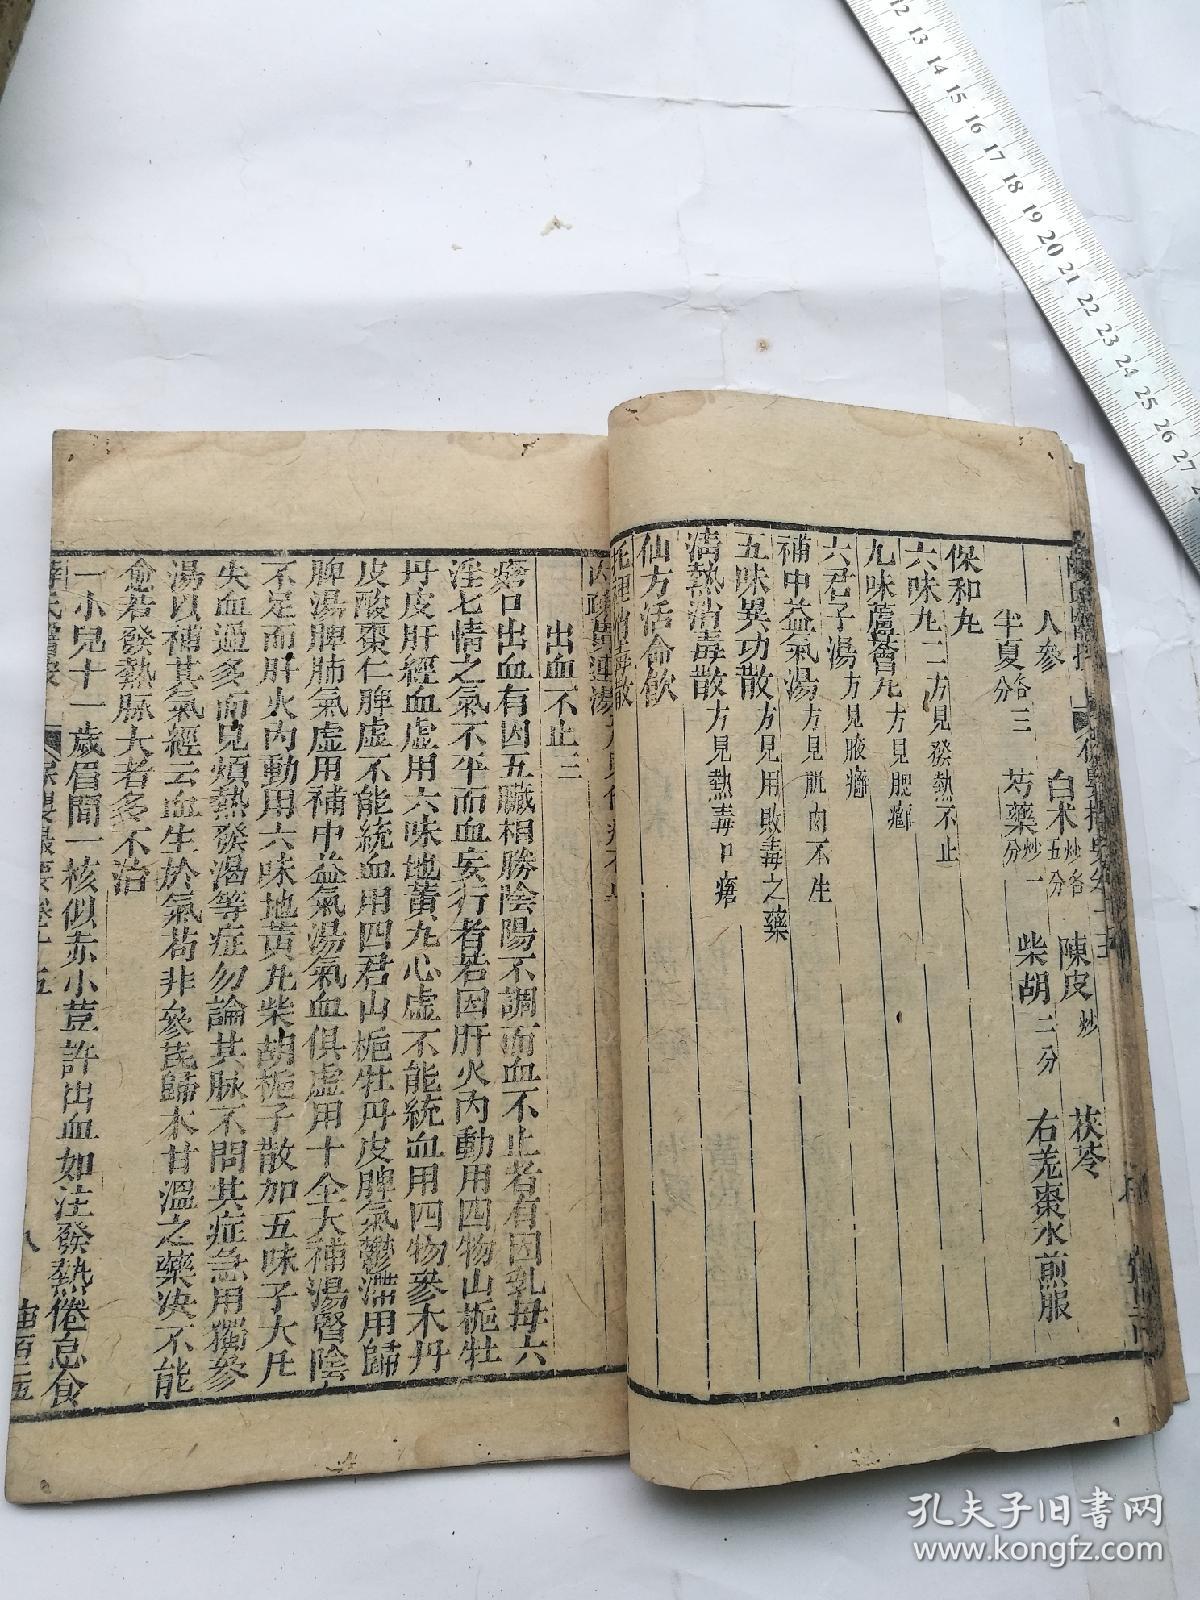 人參 白术炒各五分 陳皮炒 茯苓
半夏各三分 芍藥炒一分 柴胡二分 右羗棗水煎服
保和丸
六味丸二方見發熱不止
九味蘆薈丸方見腮癰
六君子湯方見腋癰
補中益氣湯方見肌肉不生
五味異功散方見用敗毒之藥
清熱消毒散方見熱毒口瘡
仙方活命飲
出血不止三
瘡口出血有因五臟相勝陰陽不調而血不止者有因乳母六
淫七情之氣不平而血妄行者若因肝火內動用四物山梔牡
丹皮肝經血虛用六味地黃丸心虛不能統血用四物參术丹
皮酸棗仁脾虛不能統血用四君山梔牡丹皮脾氣鬱滯用歸
脾湯脾肺氣虛用補中益氣湯氣血俱虛用十全大補湯腎陰
不足而肝火內動用六味地黃丸柴胡梔子散加五味子大凡
失血過多而見煩熱發渴等症勿論其脉不問其症急用獨參
湯以補其氣經云血生於氣苟非參芪歸术甘溫之藥决不能
愈若發熱脉大者多不治
一小兒十一歲眉間一核似赤小荳許出血如注發熱倦怠食
薛氏醫按 保嬰撮要卷十五 八
12 13 14 15 16 17 18 19 20 21 22 23 24 25 26 27
孔夫子旧书网
www.kongfz.com